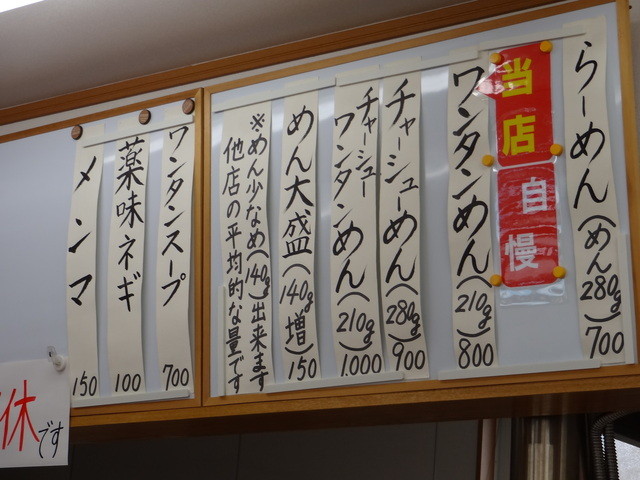 らーめん(めん280g)700
当店自慢
ワンタンめん(210g)800
チャーシューめん(280g)900
チャーシューワンタンめん(210g)1.000
めん大盛(140g増)150
※めん少なめ(140g)出来ます
他店の平均的な量です
ワンタンスープ700
薬味ネギ100
メンマ150
休です